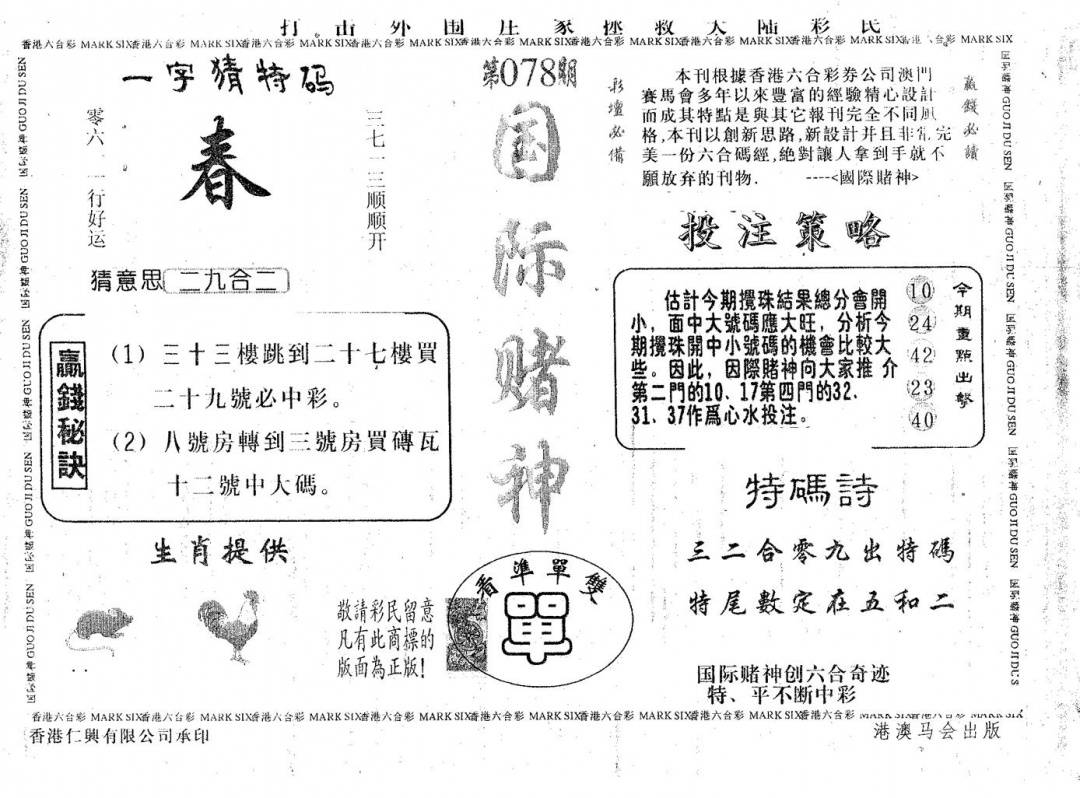 打击外围庄家拯救大陆彩民
香港六合彩 MARK SIX香港六合彩 MARK SIX香港六合彩 MARK SIX香港六合彩 MARK SIX香港六合彩 MARK SIX香港六合彩 MARK SIX香港六合彩 MARK SIX香港六合彩 MARK SIX香港六合彩 MARK SIX
一字猜特码
零六二一行好运
春
三七一三顺顺开
猜意思 二九合二
贏錢秘訣
(1) 三十三樓跳到二十七樓買
二十九號必中彩。
(2) 八號房轉到三號房買磚瓦
十二號中大碼。
生肖提供
敬請彩民留意
凡有此商標的
版面為正版!
第078期
国际赌神
看準單雙
單
彩壇必備
本刊根據香港六合彩券公司澳門
賽馬會多年以來豐富的經驗精心設計
而成其特點是與其它報刊完全不同風
格,本刊以創新思路,新設計并且非常完
美一份六合碼經,絶對讓人拿到手就不
願放弃的刊物. ----<國際賭神>
贏錢必讀
投注策略
估計今期攪珠結果總分會開
小，面中大號碼應大旺，分析今
期攪珠開中小號碼的機會比較大
些。因此，因際賭神向大家推 介
第二門的10、17第四門的32、
31、37作爲心水投注。
10
24
42
23
40
今期重點出擊
特碼詩
三二合零九出特碼
特尾數定在五和二
国际赌神创六合奇迹
特、平不断中彩
香港六合彩 MARK SIX香港六合彩 MARK SIX香港六合彩 MARK SIX香港六合彩 MARK SIX香港六合彩 MARK SIX香港六合彩 MARK SIX香港六合彩 MARK SIX香港六合彩 MARK SIX香港六合彩 MARK SIX
香港仁興有限公司承印
港澳马会出版